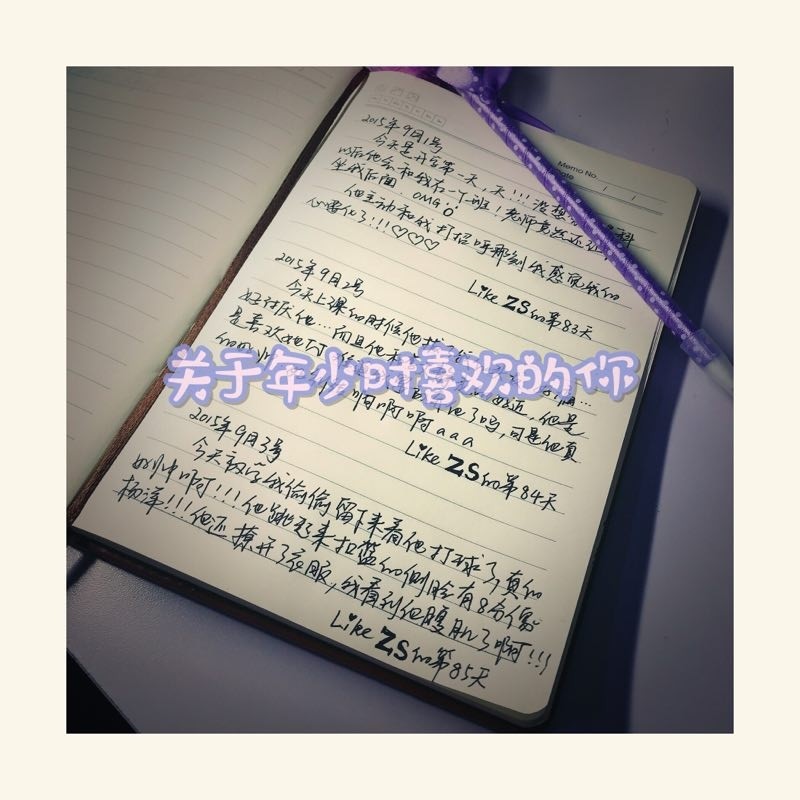 Memo No.
Date / /
2015年9月1号
今天是开学第一天,天!!!没想
以后他会和我在一个班!老师竟然还
坐我后面. OMG
他主动和我打招呼那刻我感觉我的
心要化了!!!♡♡♡
Like ZS的第83天
2015年9月2号
今天上课的时候他
好讨厌他…而且他
是喜欢她
他了吗,可是他真
的 啊啊啊aaa
Like ZS的第84天
关于年少时喜欢的你
2015年9月3号
今天放学我偷偷留下来看他打球了,真的
好帅啊!!!他跳起来扣篮的侧脸有8分像
杨洋!!!他还撩开了衣服,我看到他腹肌了啊!!!
Like ZS的第85天